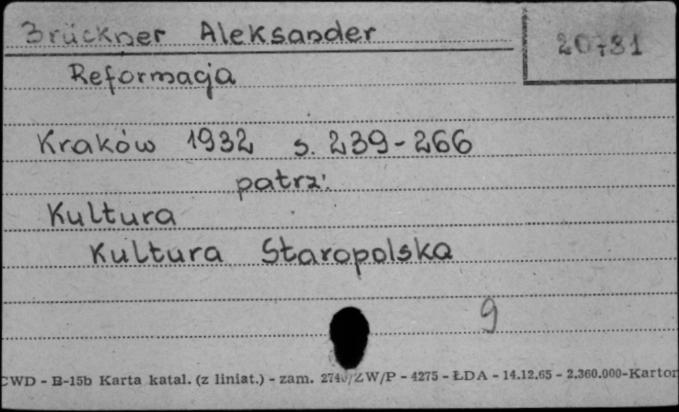 Brückner Aleksander
20781
Reformacja
Kraków 1932 s. 239-266
patrz:
Kultura
Kultura Staropolska
9
CWD - B-15b Karta katal. (z liniat.) - zam. 2740/ZW/P - 4275 - ŁDA - 14.12.65 - 2.360.000-Karton